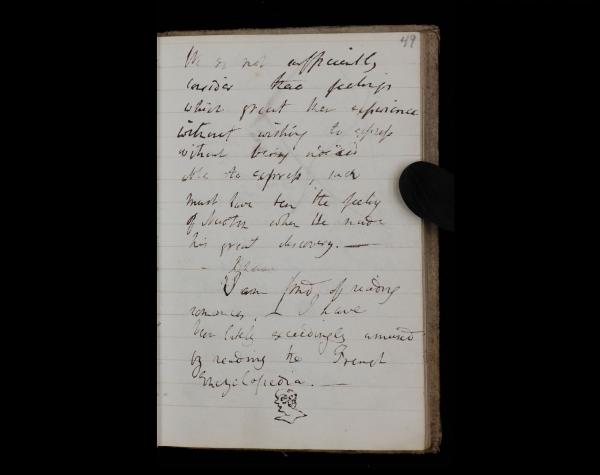 49
We do not sufficiently
consider those feelings
which great men experience
without wishing to express
without being
able to express, such
must have been the feeling
of Newton when he made
his great discovery. —
I am fond of reading
romances, — I have
been lately exceedingly amused
by reading the French
Encyclopedia. —